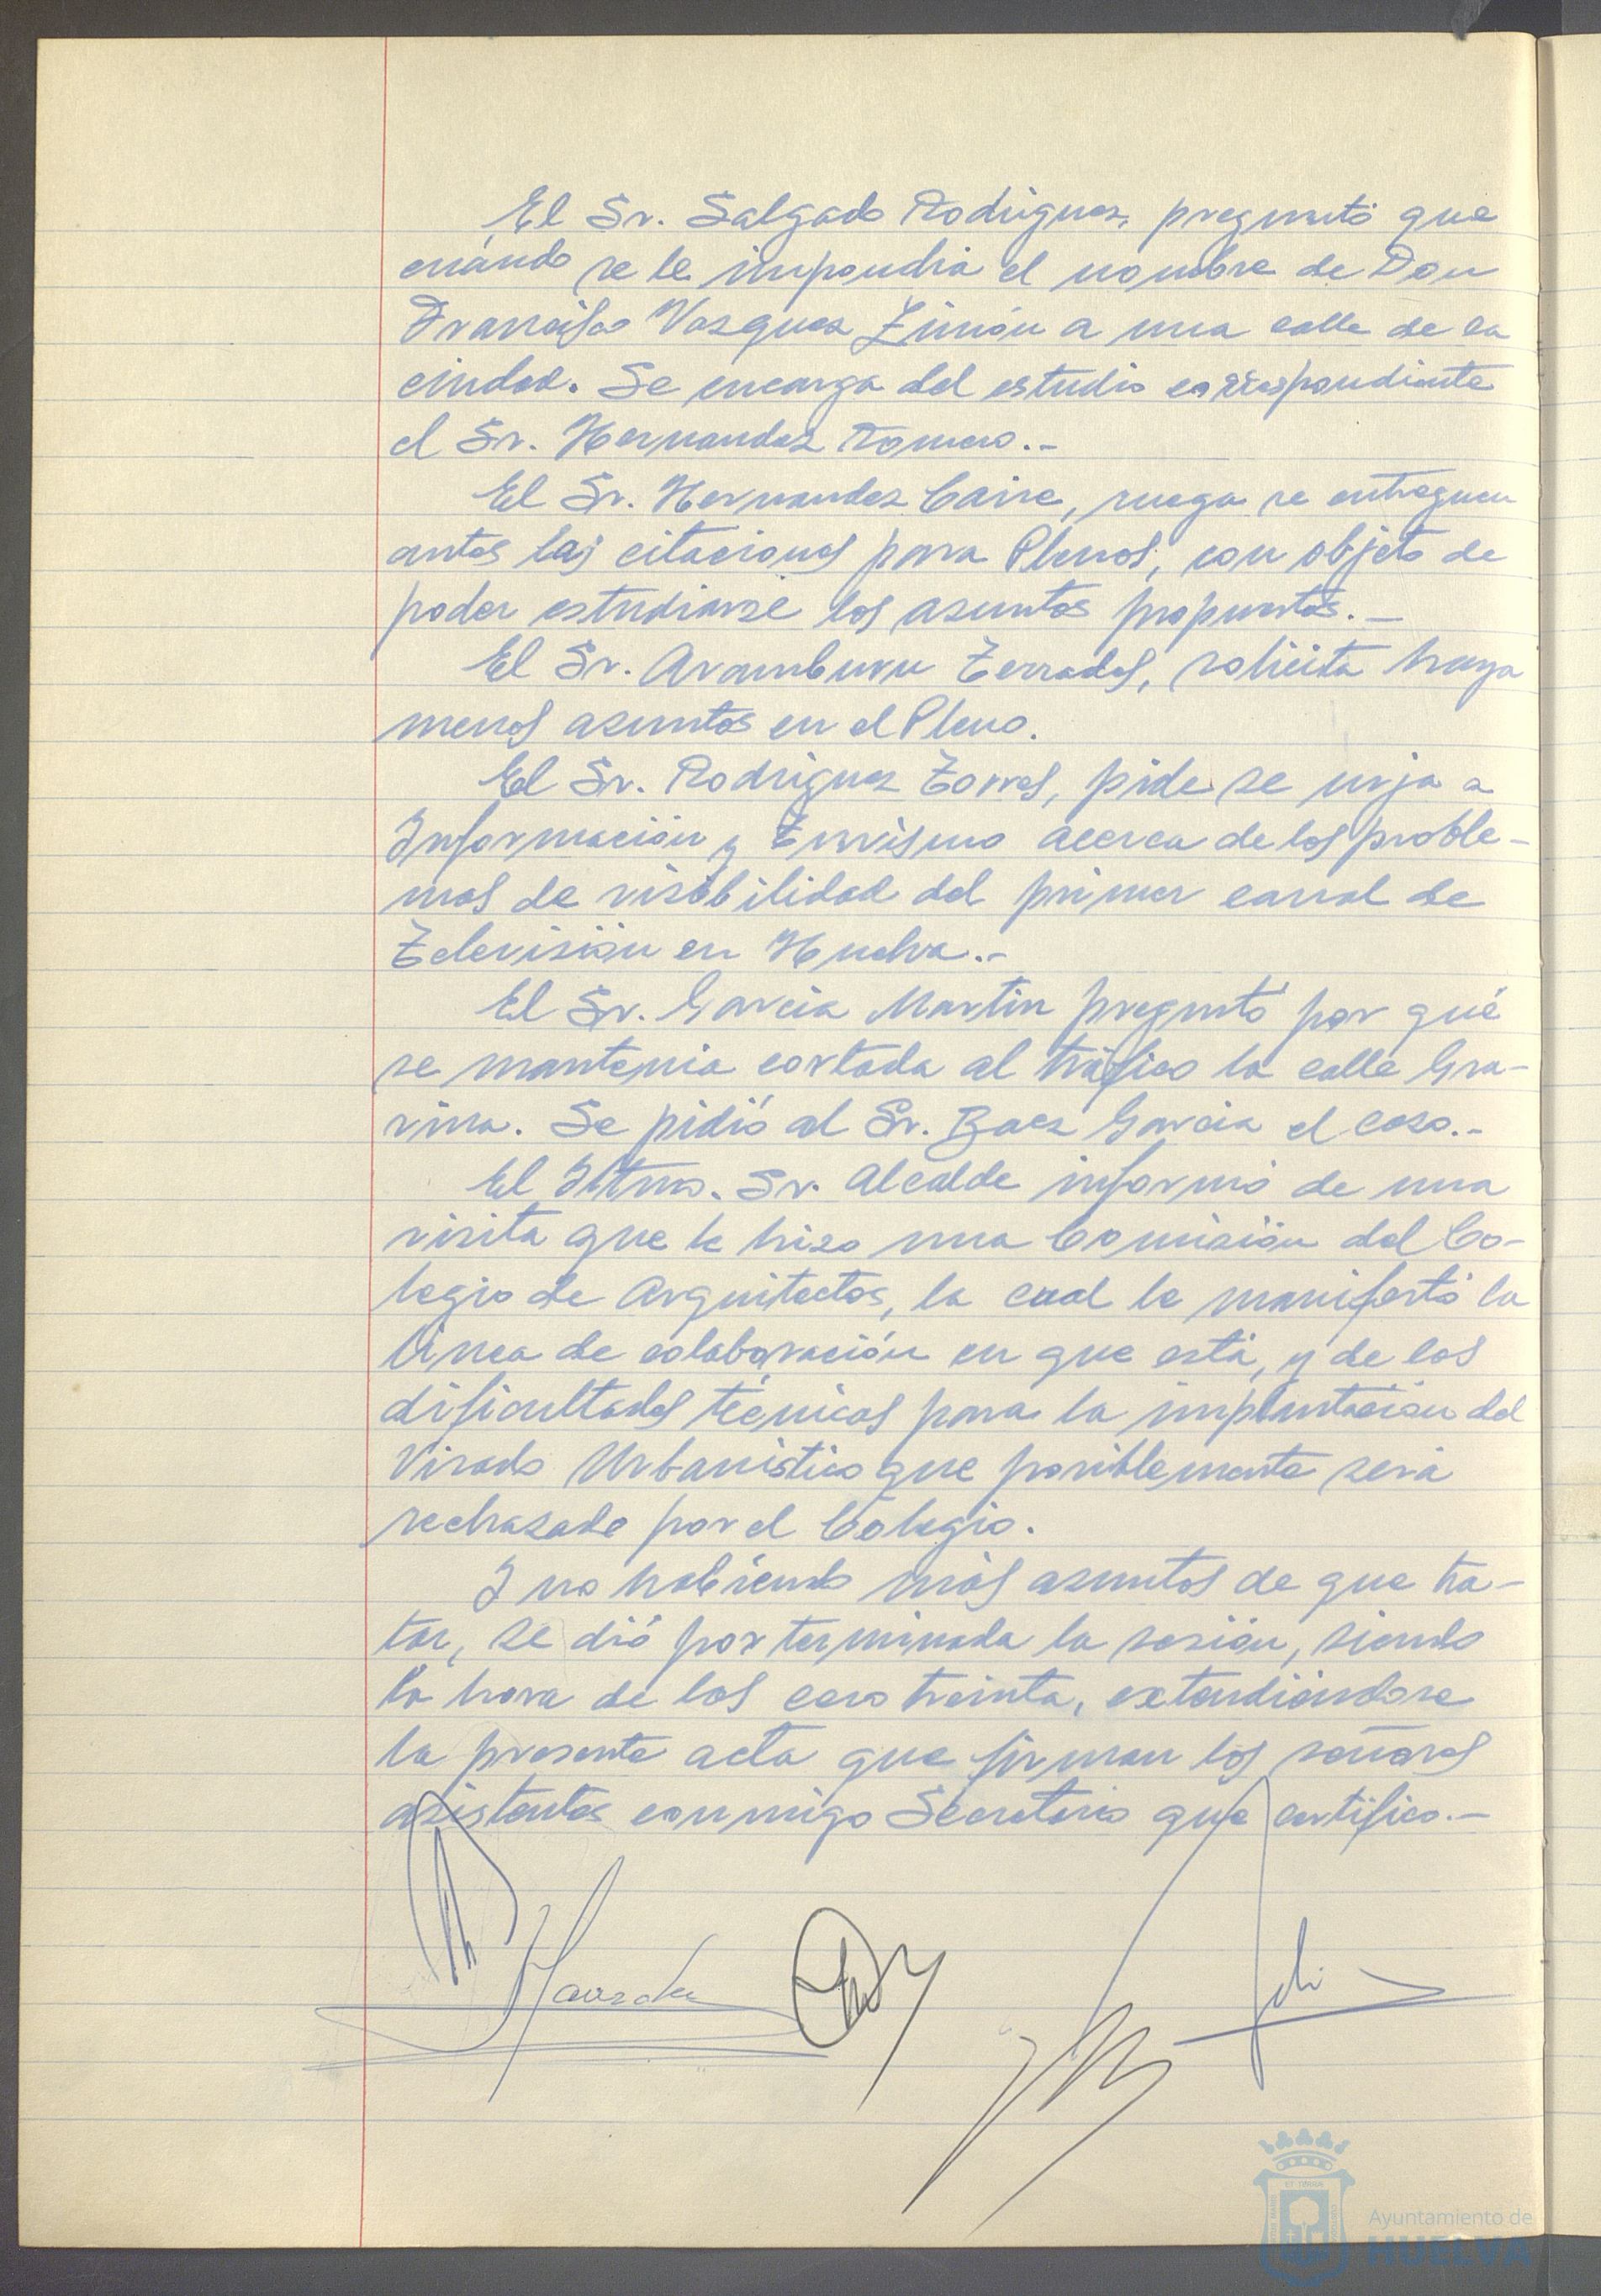 El Sr. Salgado Rodriguez, preguntó que
cuándo se le impondria el nombre de Don
Francisco Vazquez Limón a una calle de la
ciudad. Se encarga del estudio correspondiente
el Sr. Hernandez Romero.-
El Sr. Hernandez Caire, ruega se entreguen
antes las citaciones para Plenos, con objeto de
poder estudiarse los asuntos propuestos.-
El Sr. Aramburu Terrades, solicita haya
menos asuntos en el Pleno.
El Sr. Rodriguez Torres, pide se urja a
Información y Turismo acerca de los proble-
mas de visibilidad del primer canal de
Televisión en Huelva.-
El Sr. Garcia Martin preguntó por qué
se mantenia cortada al tráfico la calle Gra-
vina. Se pidió al Sr. Baez Garcia el caso.-
El Iltmo. Sr. Alcalde informó de una
visita que le hizo una Comisión del Co-
legio de Arquitectos, la cual le manifestó la
linea de colaboración en que está, y de las
dificultades técnicas para la implantación del
Visado Urbanistico que posiblemente será
rechazado por el Colegio.
Y no habiendo más asuntos de que tra-
tar, se dió por terminada la sesión, siendo
la hora de las cero treinta, extendiéndose
la presente acta que firman los señores
asistentes conmigo Secretario que certifico.-
Ayuntamiento de
HUELVA